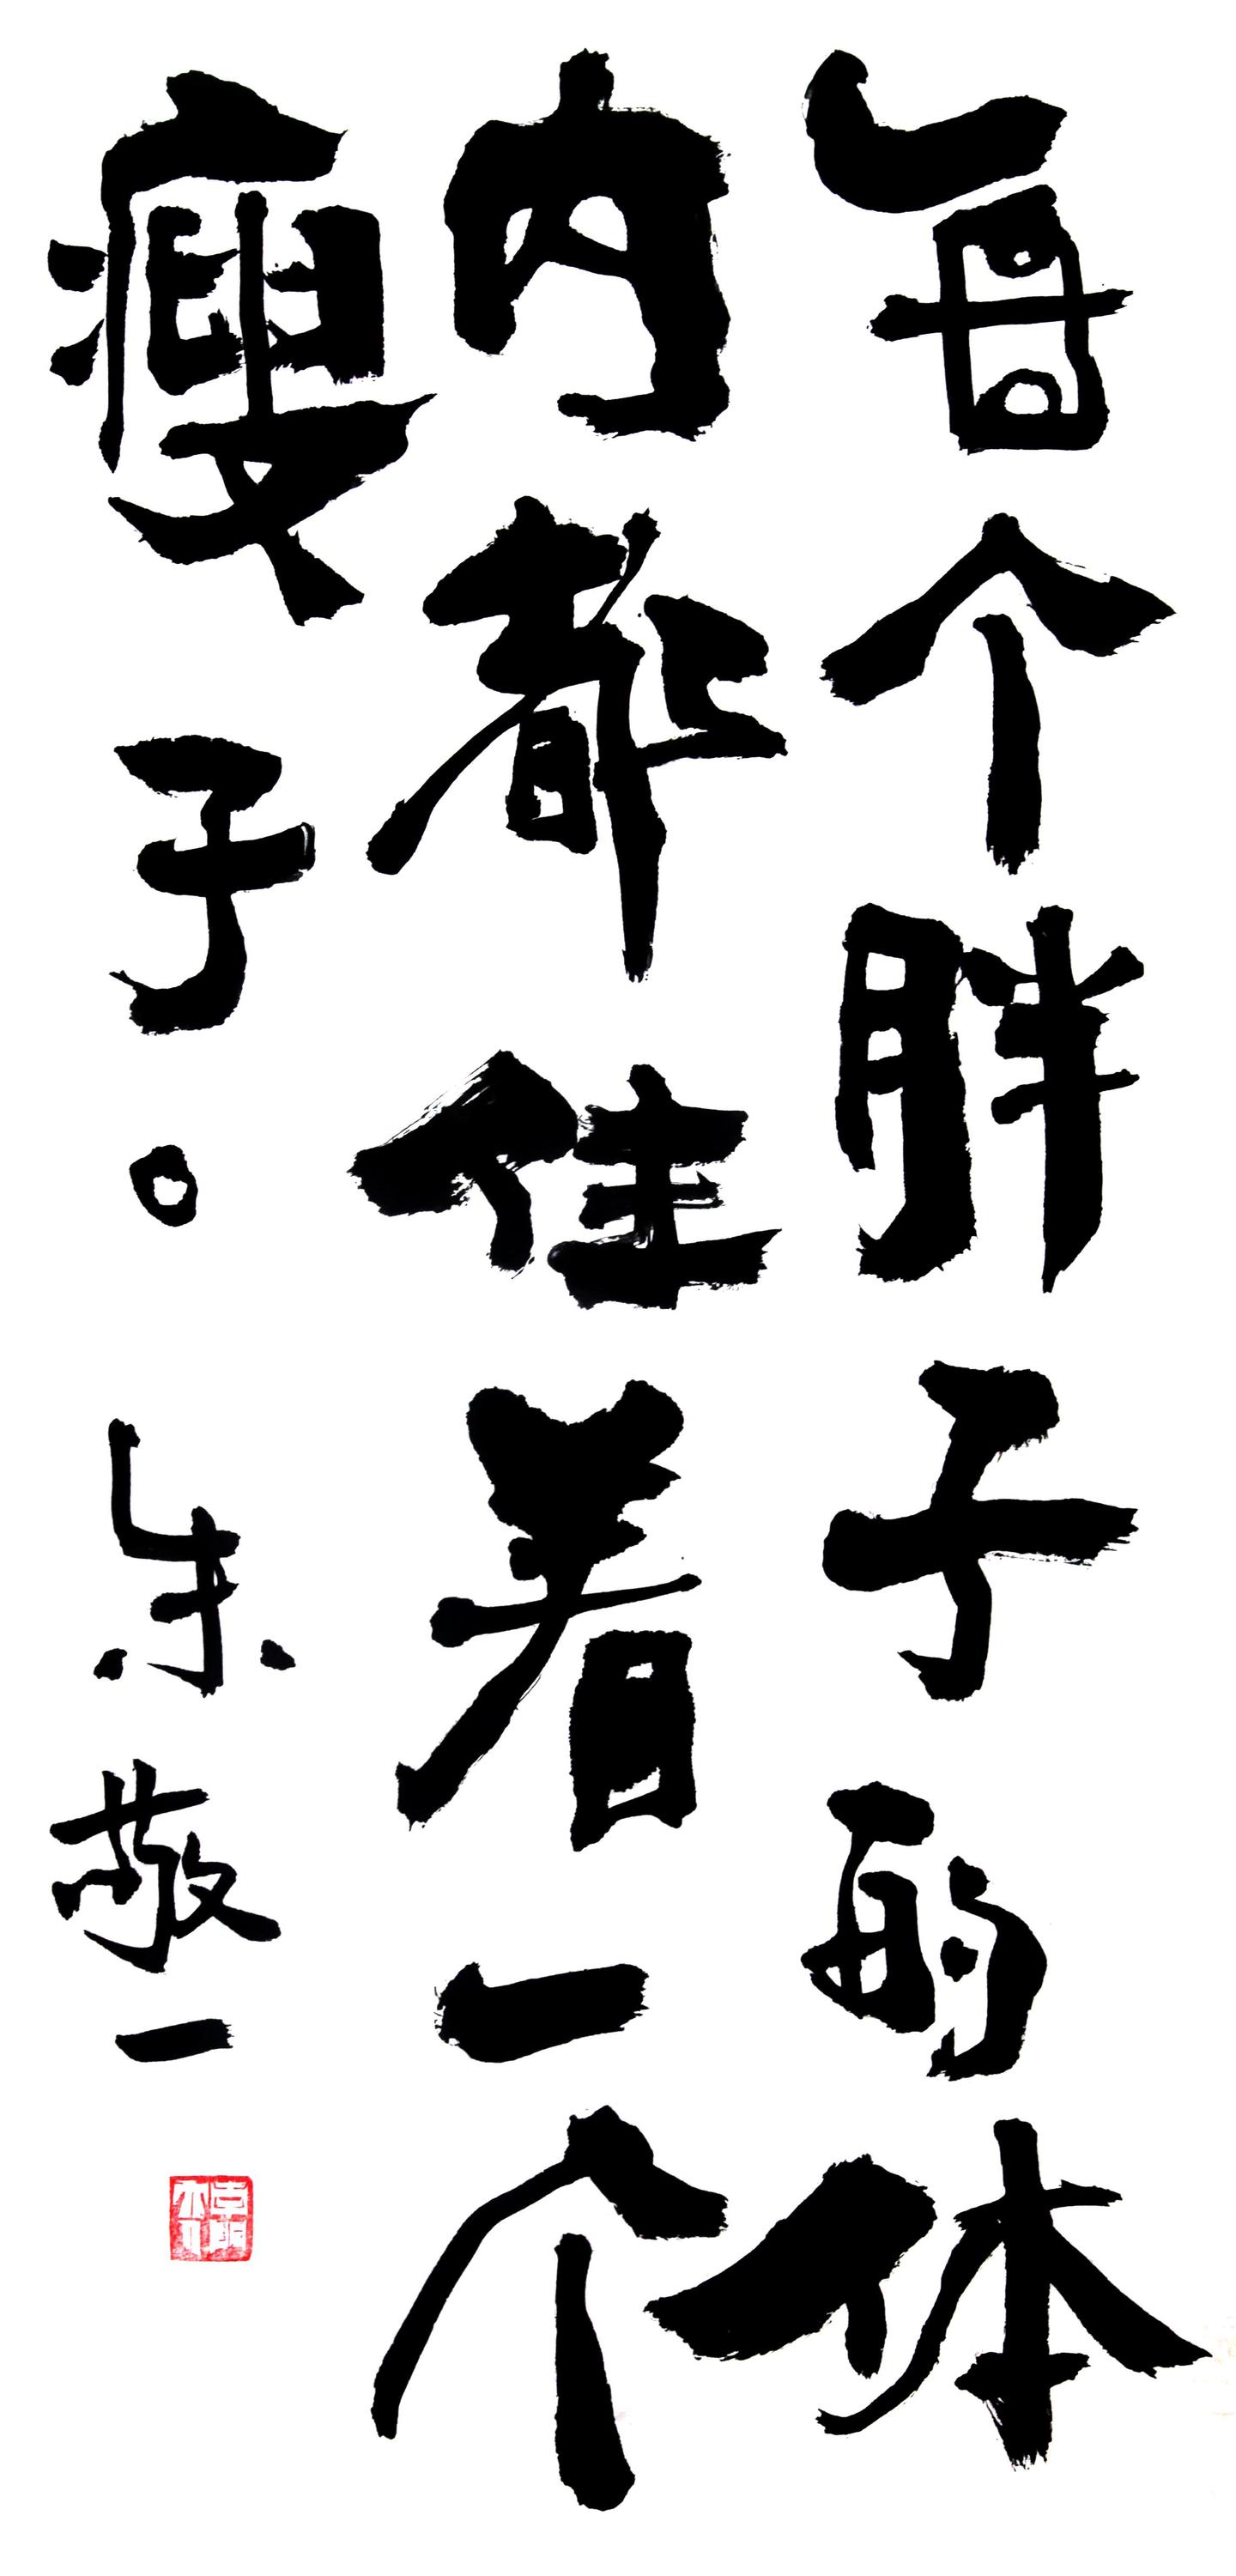 每个胖子的体
内都住着一个
瘦子。朱敬一